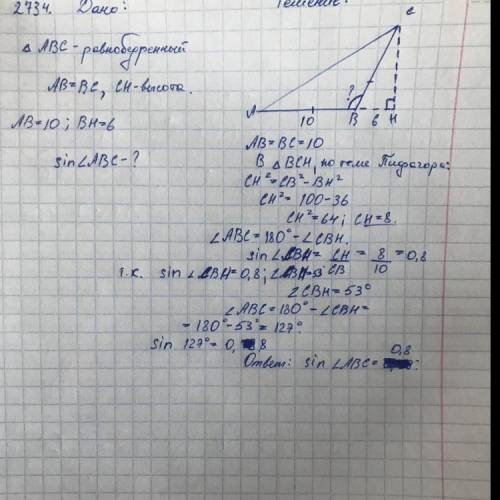 2734. Дано:
Решение:
△ ABC - равнобедренный
AB=BC, CH-высота.
AB=10; BH=6
sin∠ABC-?
C
?
A
10
B
6
H
AB=BC=10
В △BCH, по теме Пифагора:
CH²=CB²-BH²
CH²=100-36
CH²=64; CH=8.
∠ABC=180°-∠CBH.
sin∠CBH=CH/CB=8/10=0,8
т.к. sin∠CBH=0,8;
∠CBH=53°
∠ABC=180°-∠CBH=
=180°-53°=127°
sin 127°=0,8
Ответ: sin∠ABC=0,8